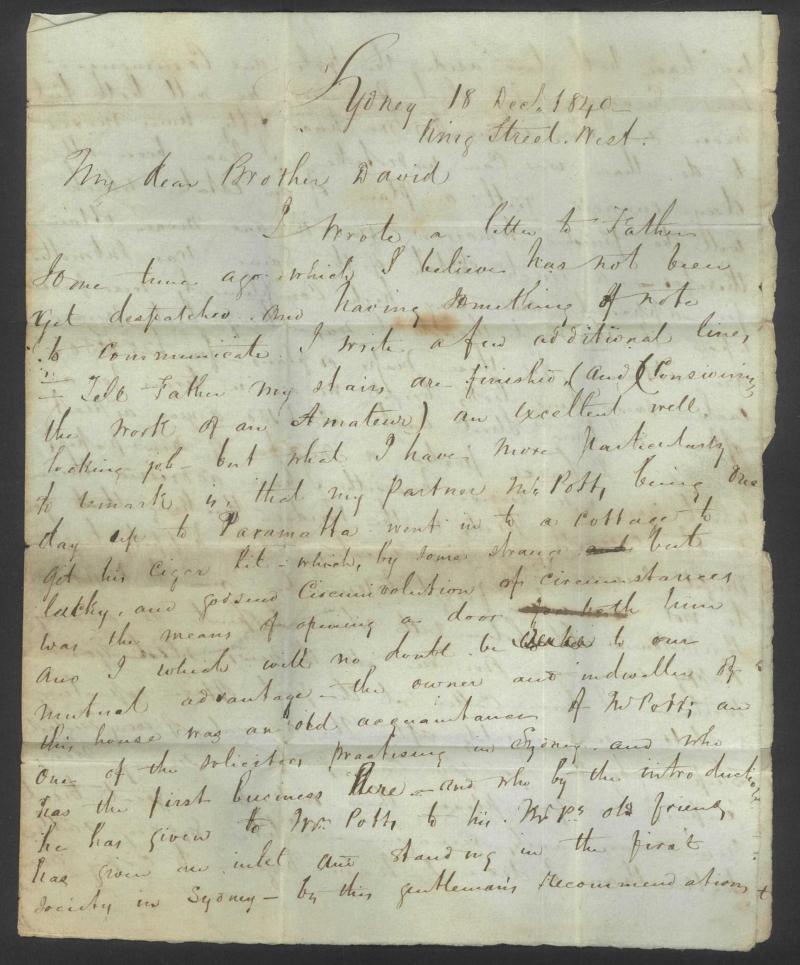 Sydney 18 Decr. 1840
King Street. West.
My dear Brother David
I wrote a letter to Father
Some time ago which I believe has not been
yet despatched. and having something of note
to communicate I write a few additional lines
- Tell Father my stairs are finished, (and (Considering
the work of an Amateur) an excellent well.
looking job - but what I have more particularly
to remark is, that my partner Mr Potts being one
day up to Paramatta went in to a cottage to
get his cigar lit - which, by some strange but
lucky, and godsend Circumvolution of circumstances
was the means of opening a door him
and I which will no doubt be to our
mutual advantage - the owner and indweller of
this house was an old acquaintance of Mr Potts, an
one of the solicitors practising in Sydney. and who
has the first business here - and who by the introduction
he has given to Mr. Potts to his. Mr P's old friend
has given an inlet and standing in the first
society in Sydney - by this gentleman's recommendations